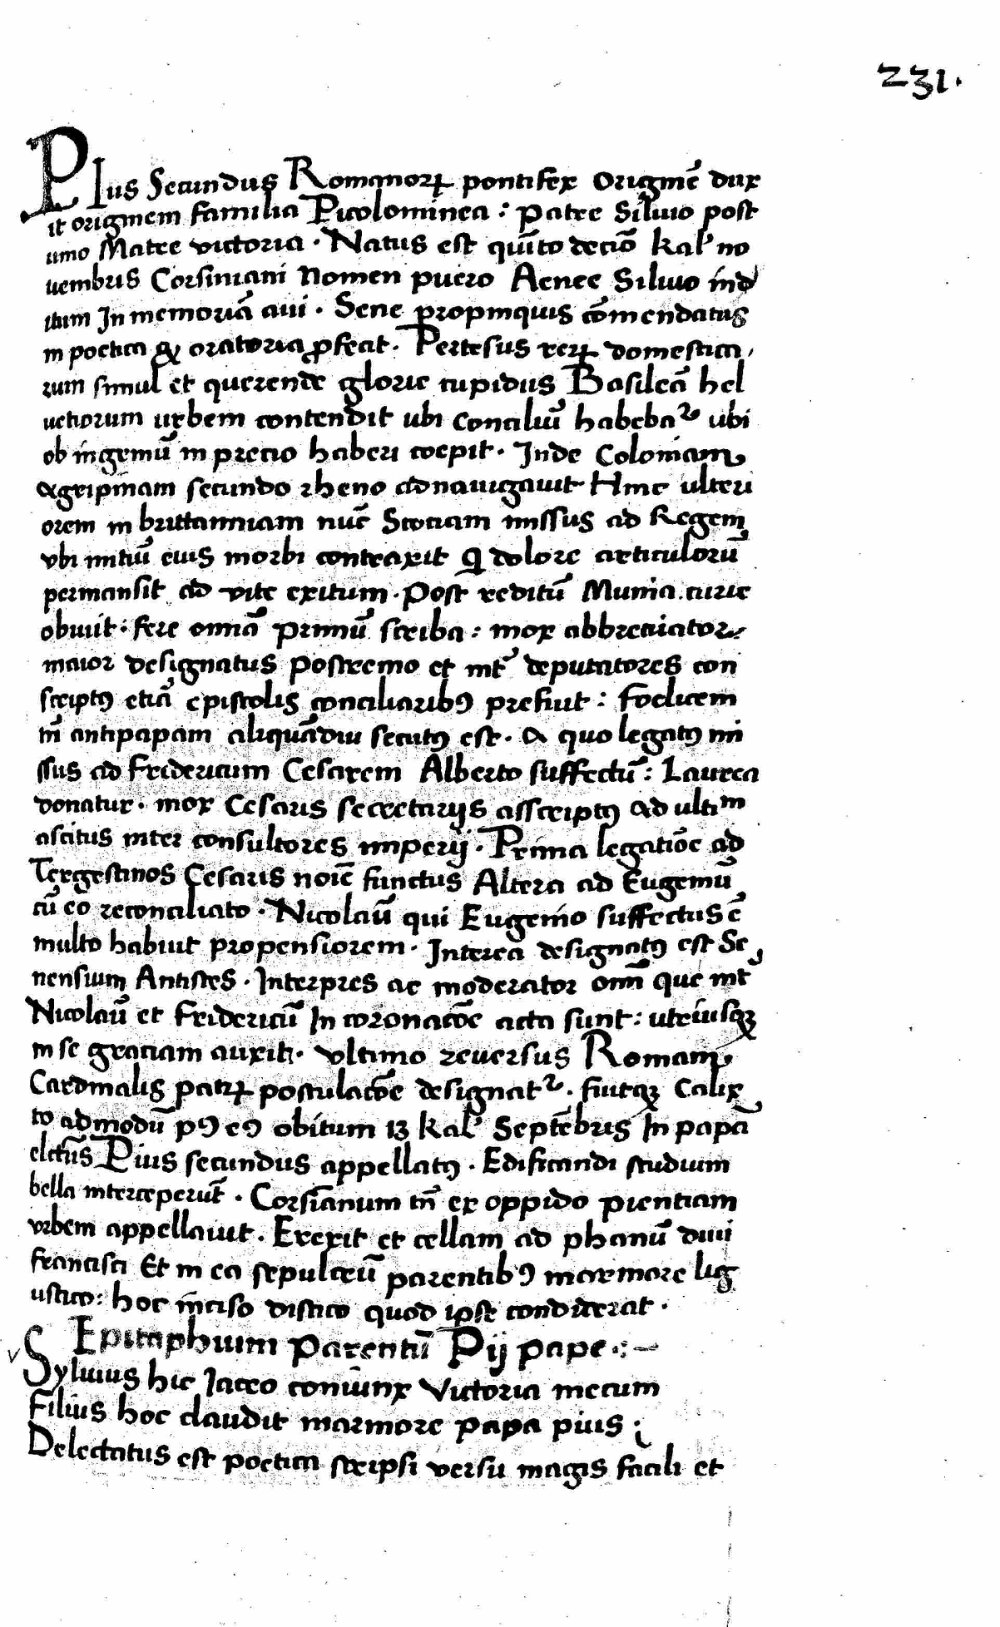 231.
PIus Secundus Romanorꝝ pontifex Originē dux
it originem familia Picolominea : Patre Siluio post
umo Matre victoria · Natus est quīto decīo kal' no
uembris Corsiniani Nomen puero Aenee Siluio ind
itum In memoriā aui · Sene propinquis cōmendatus
in poetica & oratoria ꝓfecit · Pertesus rerꝝ domestica,
rum simul et querende glorie cupidus Basileā hel
uetiorum urbem contendit ubi conciliū habebaᵗ ubi
ob ingeniū in precio haberi coepit · Inde Coloniam
Agripinam secundo rheno adnauigauit Hinc ulteri
orem in brittanniam nūc Scotiam missus ad Regem
vbi initiū eius morbi contraxit q̄ dolore articulorū
permansit ad vite exitum · Post reditū Munia curie
obiuit : fere omīa primū scriba : mox abbreuiator
maior designatus postremo et inť deputatores con
scriptꝰ etiā epistolis conciliaribꝰ prefuit : foelicem
tn̄ antipapam aliquādiu secutꝰ est · A quo legatꝰ mi
ssus ad Fridericum Cesarem Alberto suffectū : Laurea
donatur · mox Cesaris secretarijs asscriptꝰ ad ultiᵐ
ascitus inter consultores imperij · Prima legatiōe ad
Tergestinos Cesaris noīe functus Altera ad Eugeniū
cū eo reconciliato · Nicolaū qui Eugenio suffectus ē
multo habuit propensiorem · Interea designatꝰ est Se,
nensium Antistes · Interpres ac moderator omī que int'
Nicolaū et Fridericū In coronacōe acta sunt : utriusqꝫ
in se graciam auxit · vltimo reuersus Romam
Cardinalis patrꝝ postulacōe designatʳ · fuitqꝫ Calix
to admodū pꝰ eꝰ obitum 13 kal' Septēbris In papā
elctūs Pius secundus appellatꝰ · Edificandi studium
bella interceperūt · Corsianum tn̄ ex oppido pientiam
vrbem appellauit · Erexit et cellam ad phanū diui
francisci Et in ea sepulcrū parentibꝰ marmore lig
ustico : hoc inciso distico quod ipse condiderat ·
Epitaphium Parentū Pij pape ·:~
Syluius hic Iaceo coniūnx Victoria mecum
Filius hoc claudit marmore papa pius ;
Delectatus est poetica scripsi versu magis facili et